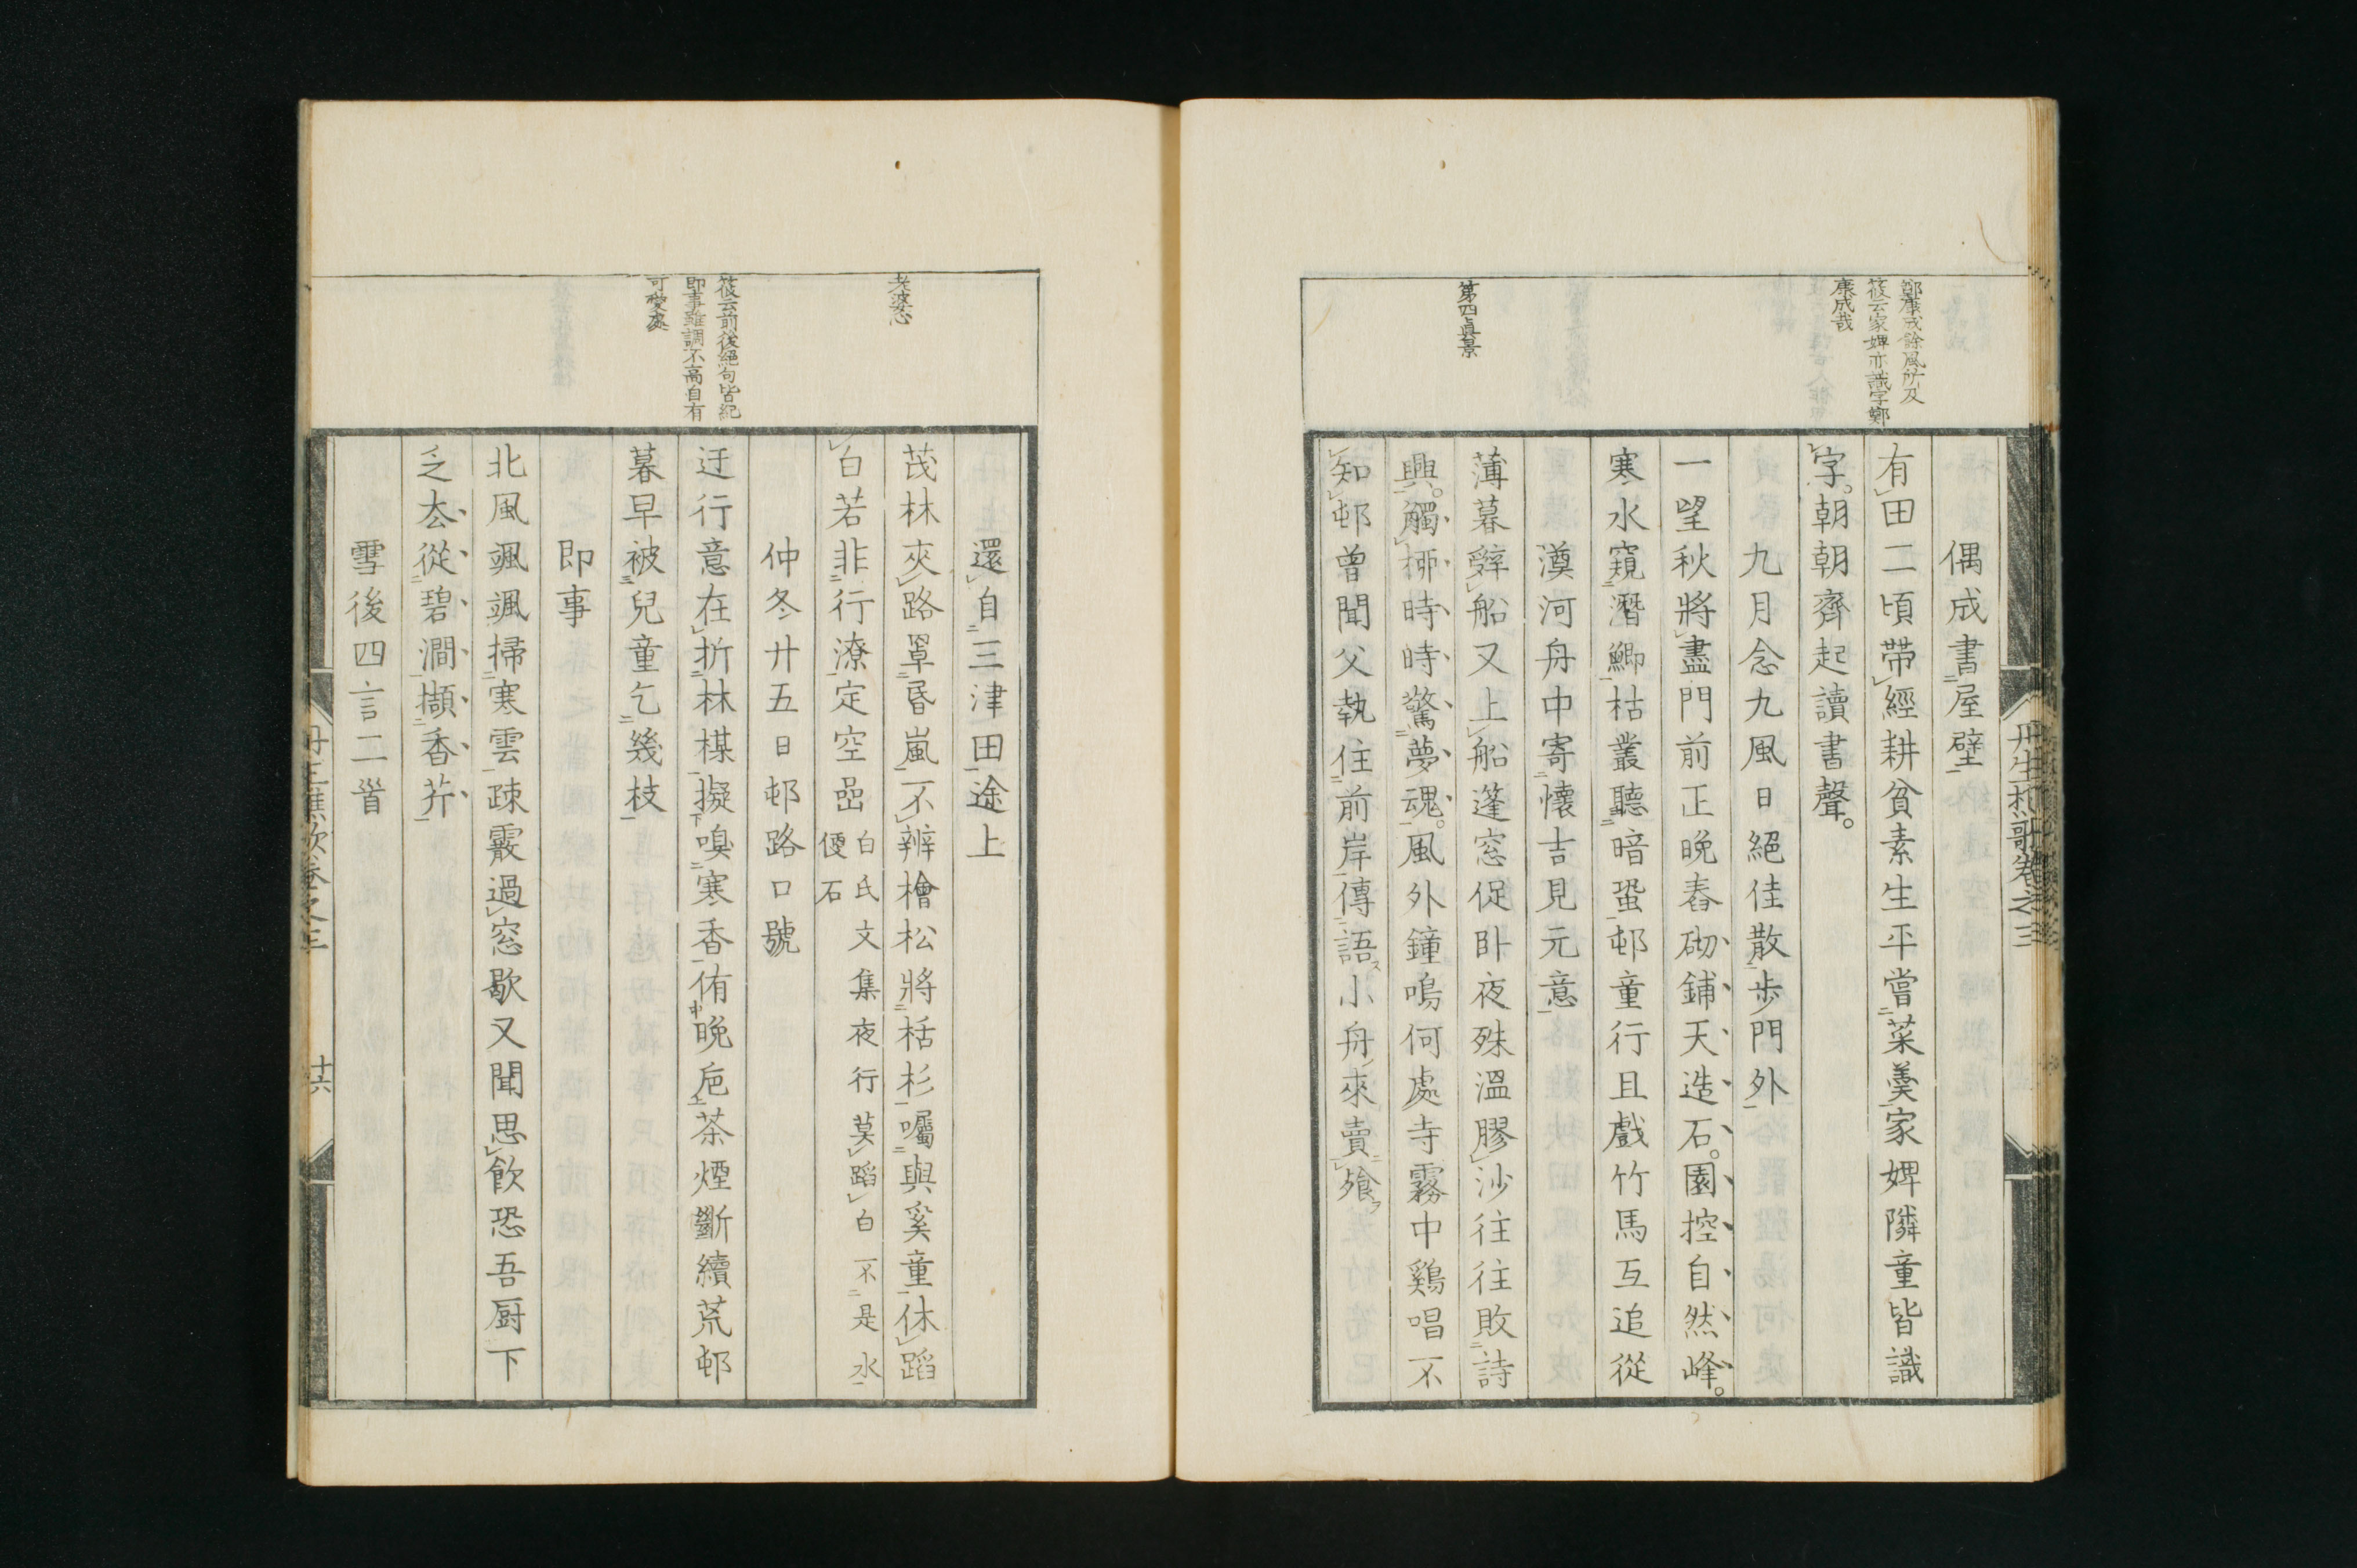 鄭康成餘風所及
筱云家婢亦識字鄭
康成哉
第四眞景
丹生樵歌卷之三
偶成書屋壁
有田二頃帶經耕貧素生平嘗菜羮家婢隣童皆識
字朝朝齊起讀書聲
九月念九風日絕佳散步門外
一望秋將盡門前正晚舂砌鋪天造石園控自然峰
寒水窺潛鯽枯叢聽暗蛩邨童行且戲竹馬互追從
澫河舟中寄懷吉見元意
薄暮辭船又上船蓬窓促卧夜殊溫膠沙往往敗詩
興觸桺時時驚夢魂風外鐘鳴何處寺霧中鷄唱不
知邨曾聞父執住前岸傳語小舟來賣飱
老婆心
筱云前後絕句皆紀
即事雖調不高自有
可愛處
還自三津田途上
茂林夾路罩昏嵐不辨檜松將栝杉囑與奚童休蹈
白若非行潦定空嵒 白氏文集夜行莫蹈白不是水便石
仲冬廿五日邨路口號
迂行意在折林楳擬嗅寒香侑晚巵茶煙斷續荒邨
暮早被兒童乞幾枝
即事
北風颯颯掃寒雲疎霰過窓歇又聞思飮恐吾厨下
乏厺從碧澗擷香芹
雪後四言二首
丹生樵歌卷之三
十六